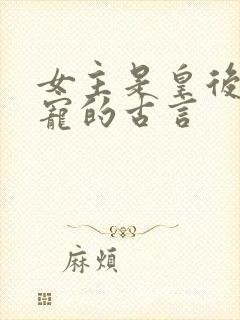 女主是皇後
寵的古言
麻煩